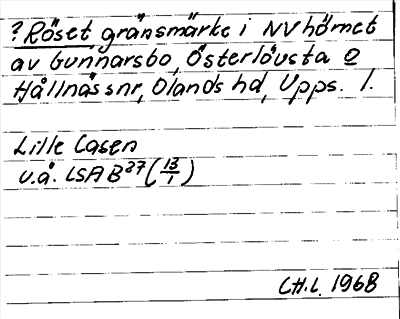 ? Röset gränsmärke i NV hörnet
av Gunnarsbo, Österlövsta o
Hållnäs snr, Olands hd, Upps. l.
Lille Casen
u.å. LSA B37 (13/1)
C.H.L. 1968